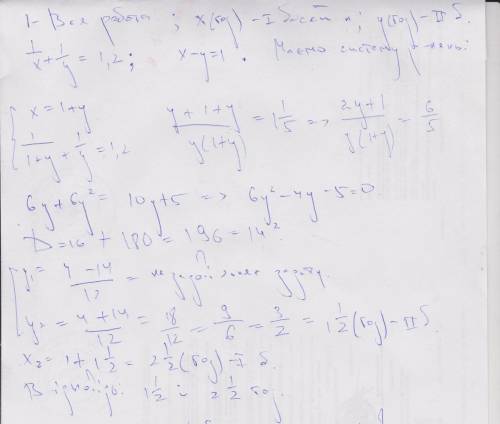 1 - Вся работа ; x(год) - I бас ; y(год) - II б.
1/x + 1/y = 1,2 ; x - y = 1 . Маємо систему р-нень:
{ x = 1 + y
1/(1+y) + 1/y = 1,2
(y + 1 + y)/(y(1+y)) = 1 1/5 => (2y + 1)/(y(1+y)) = 6/5
6y + 6y² = 10y + 5 => 6y² - 4y - 5 = 0
D = 16 + 180 = 196 = 14².
{ y₁ = (4 - 14)/12 = не задовільняє задачу.
y₂ = (4 + 14)/12 = 18/12 = 9/6 = 3/2 = 1 1/2 (год) - II б.
x₂ = 1 + 1 1/2 = 2 1/2 (год) - I б.
Відповідь: 1 1/2 і 2 1/2 год.